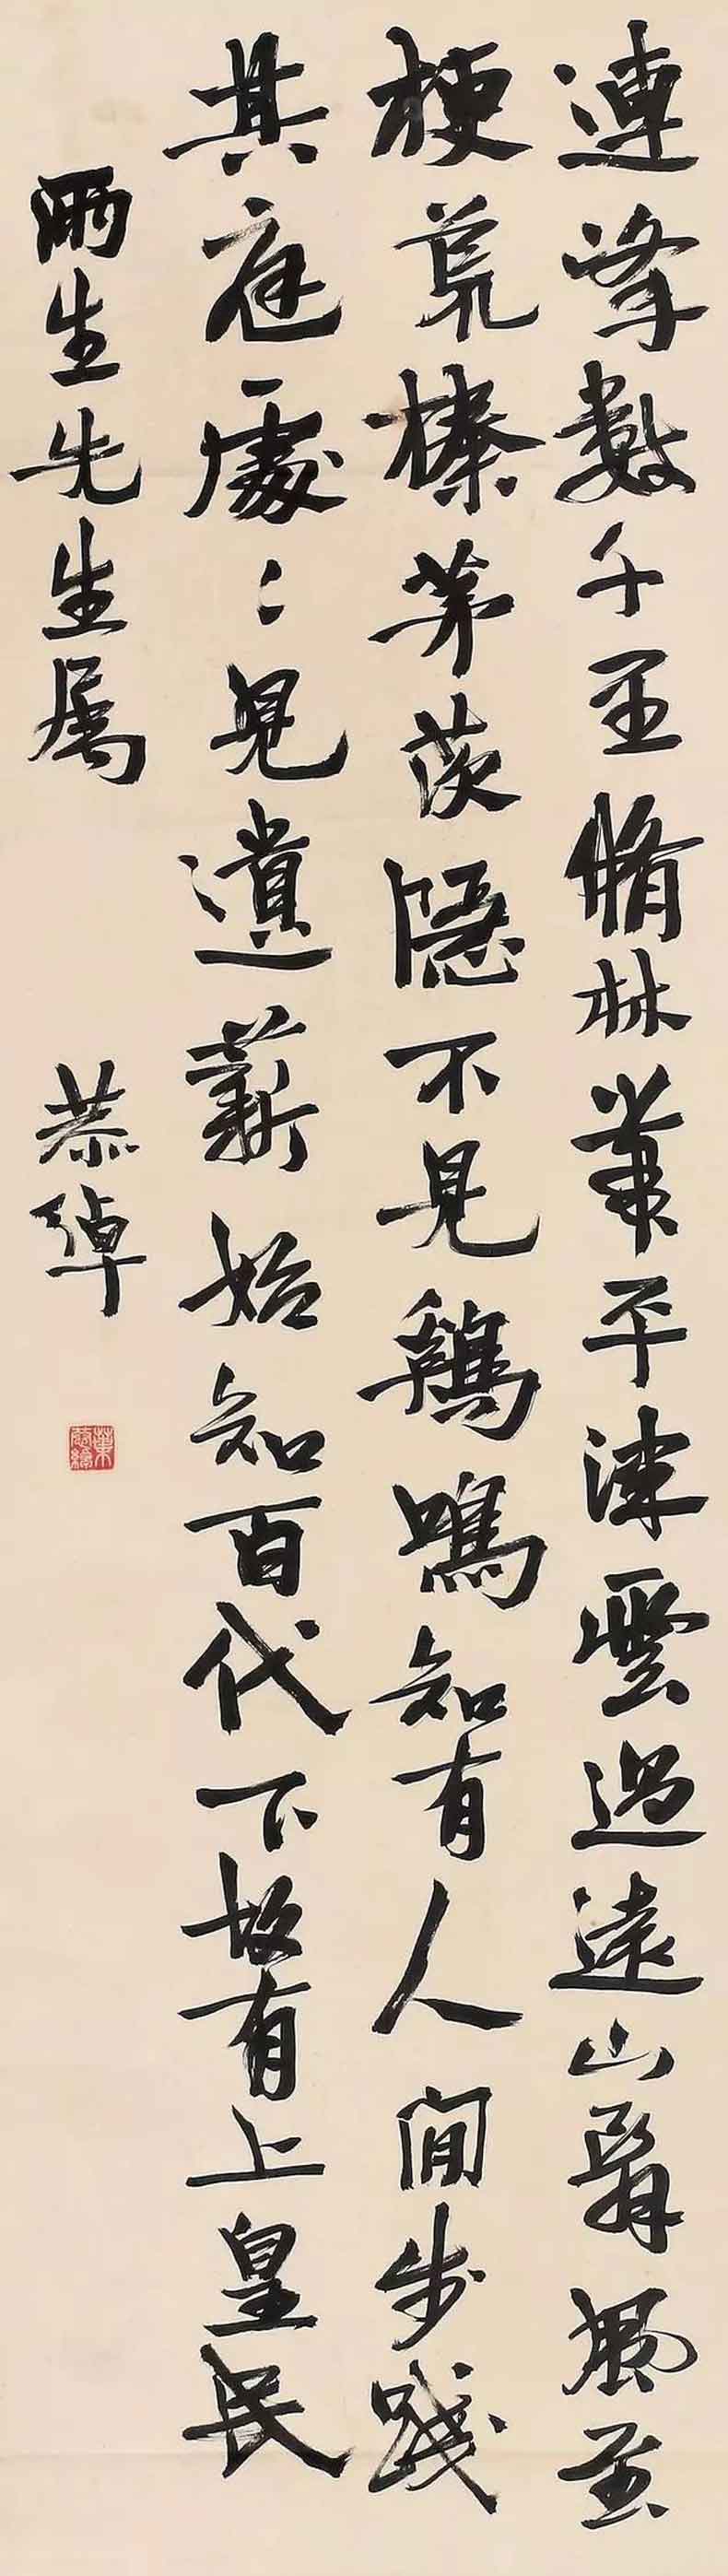 連峯數千里脩林帶平津雲過遠山翳風至
梗荒榛茅茨隱不見鷄鳴知有人閒步踐
其庭處〻見遺薪始知百代下故有上皇民
雨生先生屬
恭綽
葉恭綽